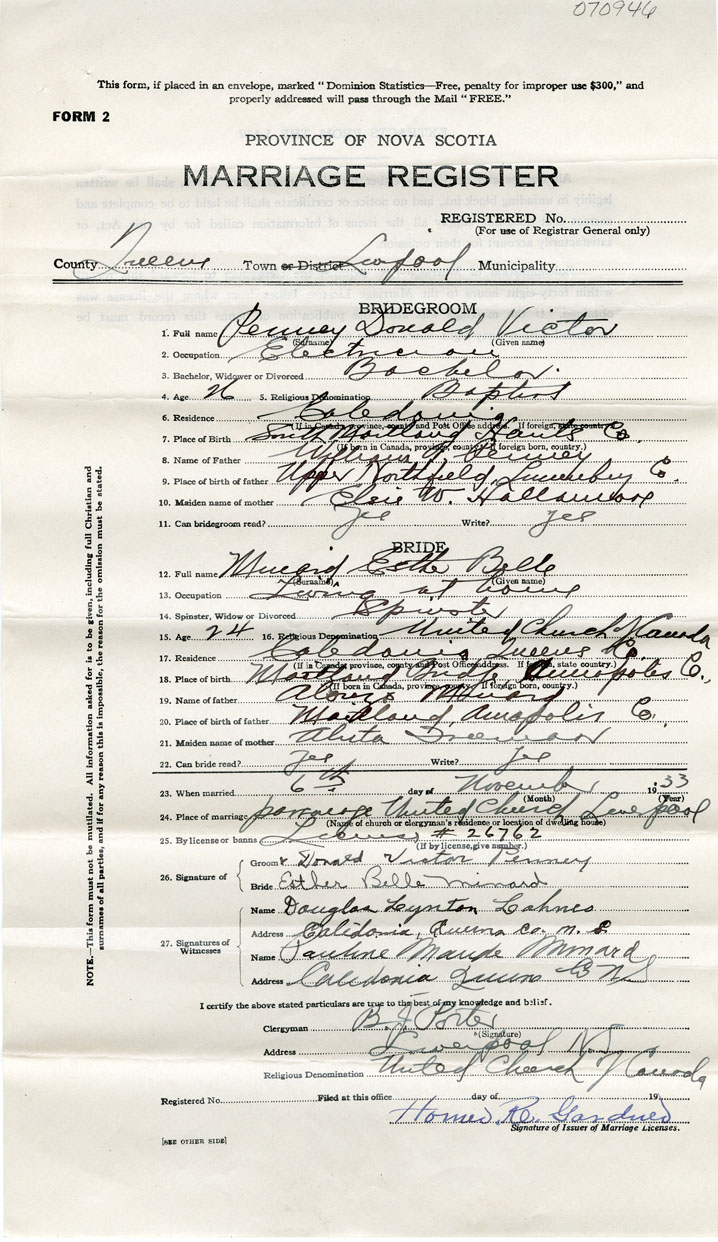 070946
This form, if placed in an envelope, marked “Dominion Statistics—Free, penalty for improper use $300,” and
properly addressed will pass through the Mail “FREE.”
FORM 2
PROVINCE OF NOVA SCOTIA
MARRIAGE REGISTER
REGISTERED No.
(For use of Registrar General only)
County Queens Town or District Livpool Municipality
BRIDEGROOM
1. Full name Penney Donald Victor
(Surname) (Given name)
2. Occupation Electrician
3. Bachelor, Widower or Divorced Bachelor.
4. Age 26 5. Religious Denomination Baptist
6. Residence Caledonia
(If in Canada, province, county and Post Office address. If foreign, state country.)
7. Place of Birth South Maitland Hants Co.
(If born in Canada, province, county. If foreign born, country.)
8. Name of Father William Penney
9. Place of birth of father Upper Northfield, Lunenburg Co.
10. Maiden name of mother Elsie W. Hallamore
11. Can bridegroom read? Yes Write? Yes
BRIDE
12. Full name Minard Esther Belle
(Surname) (Given name)
13. Occupation Living at home
14. Spinster, Widow or Divorced Spinster
15. Age 24 16. Religious Denomination United Church Canada
17. Residence Caledonia Queens Co.
(If in Canada, province, county and Post Office address. If foreign, state country.)
18. Place of birth Maitland Bridge Annapolis Co.,
(If born in Canada, province, county. If foreign born, country.)
19. Name of father Minard
20. Place of birth of father Maitland, Annapolis Co.
21. Maiden name of mother Freeman
22. Can bride read? Yes Write? Yes
23. When married 6th day of November 1933
(Month) (Year)
24. Place of marriage parsonage United Church Liverpool
(Name of church or clergyman's residence or location of dwelling house)
25. By license or banns License # 26762
(If by license, give number.)
26. Signature of
Groom x Donald Victor Penney
Bride Esther Belle Minard
27. Signatures of Witnesses
Name Douglas Lynton Lohnes
Address Caledonia, Queens Co. N. S.
Name Pauline Maude Minard
Address Caledonia Queens Co NS
I certify the above stated particulars are true to the best of my knowledge and belief.
Clergyman B. J. Porter
(Signature)
Address Liverpool N.S
Religious Denomination United Church Canada
Registered No. Filed at this office day of 19
Homer Gardner
Signature of Issuer of Marriage Licenses.
[SEE OTHER SIDE]
NOTE.—This form must not be mutilated. All information asked for is to be given, including full Christian and
surnames of all parties, and if for any reason this is impossible, the reason for the omission must be stated.